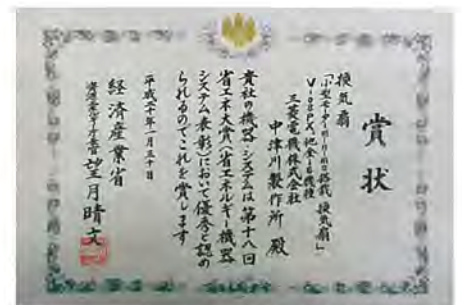 賞状
換気扇
「小型モータ搭載 換気扇」
三菱電機株式会社
中津川製作所 殿
貴社の機器・システムは第十八回
省エネ大賞(省エネルギー機器・
システム表彰)において優秀と認め
られるのでこれを賞します
平成二十年一月三十日
経済産業省
望月晴文